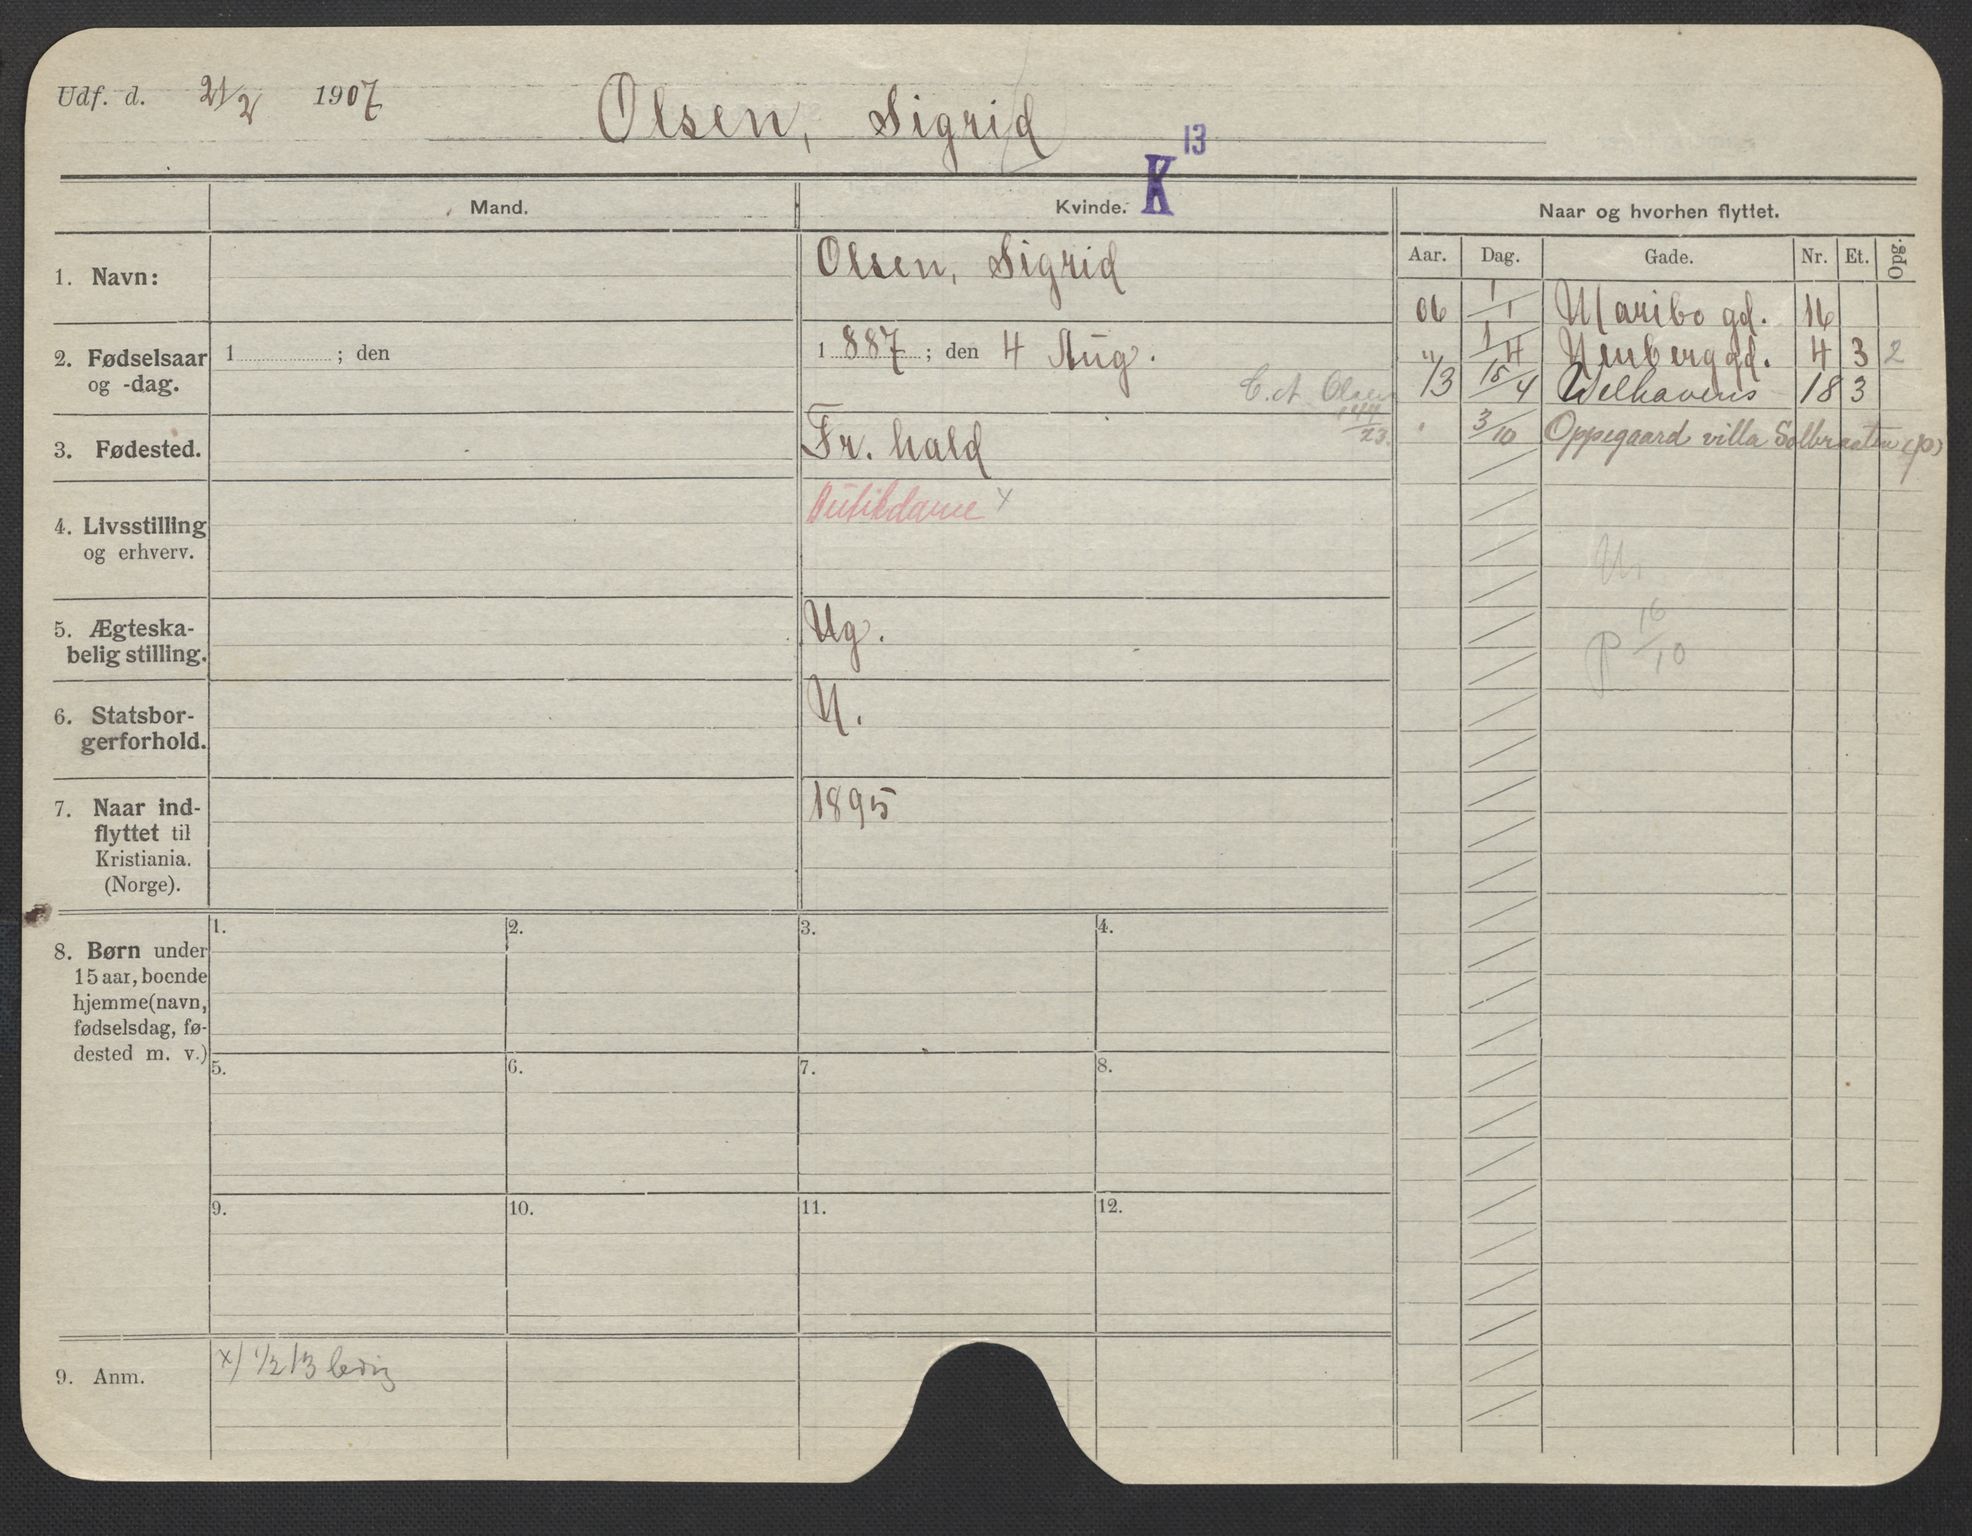 Udf. d. 21/2 1907
Olsen, Sigrid
K 13
Mand.
Kvinde.
Naar og hvorhen flyttet.
Aar. Dag. Gade. Nr. Et. Opg.
1. Navn:
Olsen, Sigrid
06 1/1 Maribo gd. 16
2. Fødselsaar
og -dag.
1 ; den
1887 ; den 4 Aug.
" 1/4 gd. 4 3 2
13 15/4 Welhavens 18 3
C. A. Olsen
23.
3. Fødested.
Fr. hald
" 3/10 Oppegaard villa Solbraaten (p)
4. Livsstilling
og erhverv.
Butikdame x
5. Ægteska-
belig stilling.
Ug.
P 16/10
6. Statsbor-
gerforhold.
N.
7. Naar ind-
flyttet til
Kristiania.
(Norge).
1895
8. Børn under
15 aar, boende
hjemme (navn,
fødselsdag, fø-
dested m. v.)
1. 2. 3. 4.
5. 6. 7. 8.
9. 10. 11. 12.
9. Anm.
x) 1/2 13 ledig